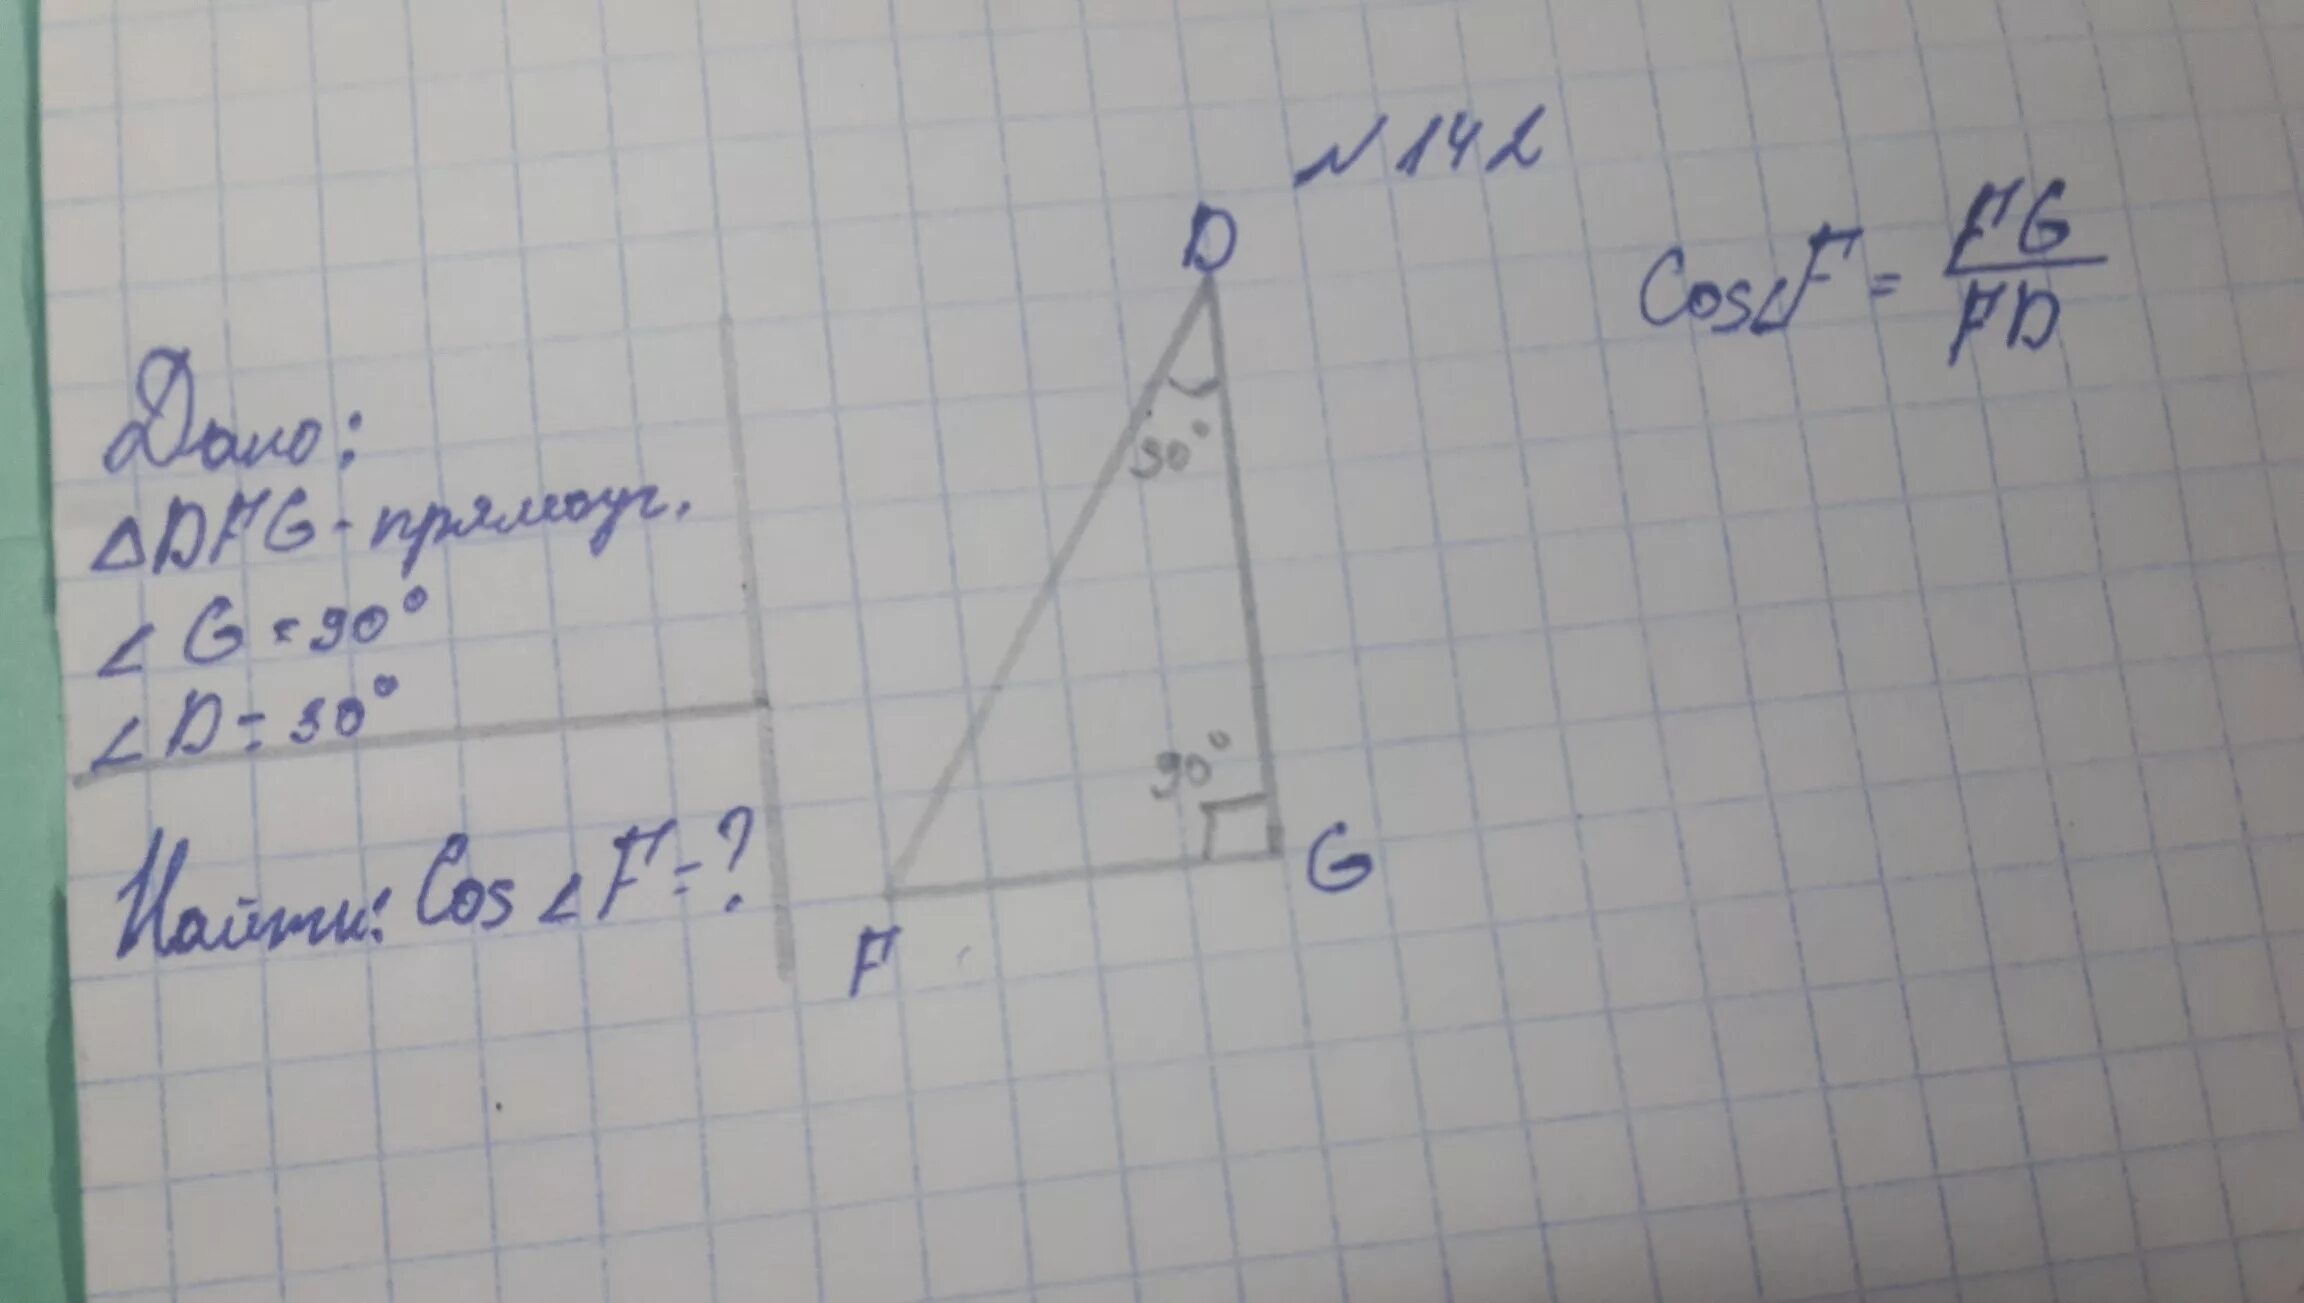 N 142
Дано:
△DFG - прямоуг.
∠G = 90°
∠D = 30°
Найти: Cos∠F = ?
D
30°
90°
G
F
Cos∠F = FG / FD